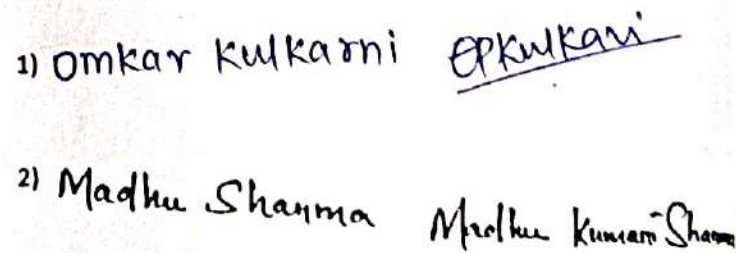 1) Omkar Kulkarni OPKulkarni
2) Madhu Sharma Madhu Kumari Sharma